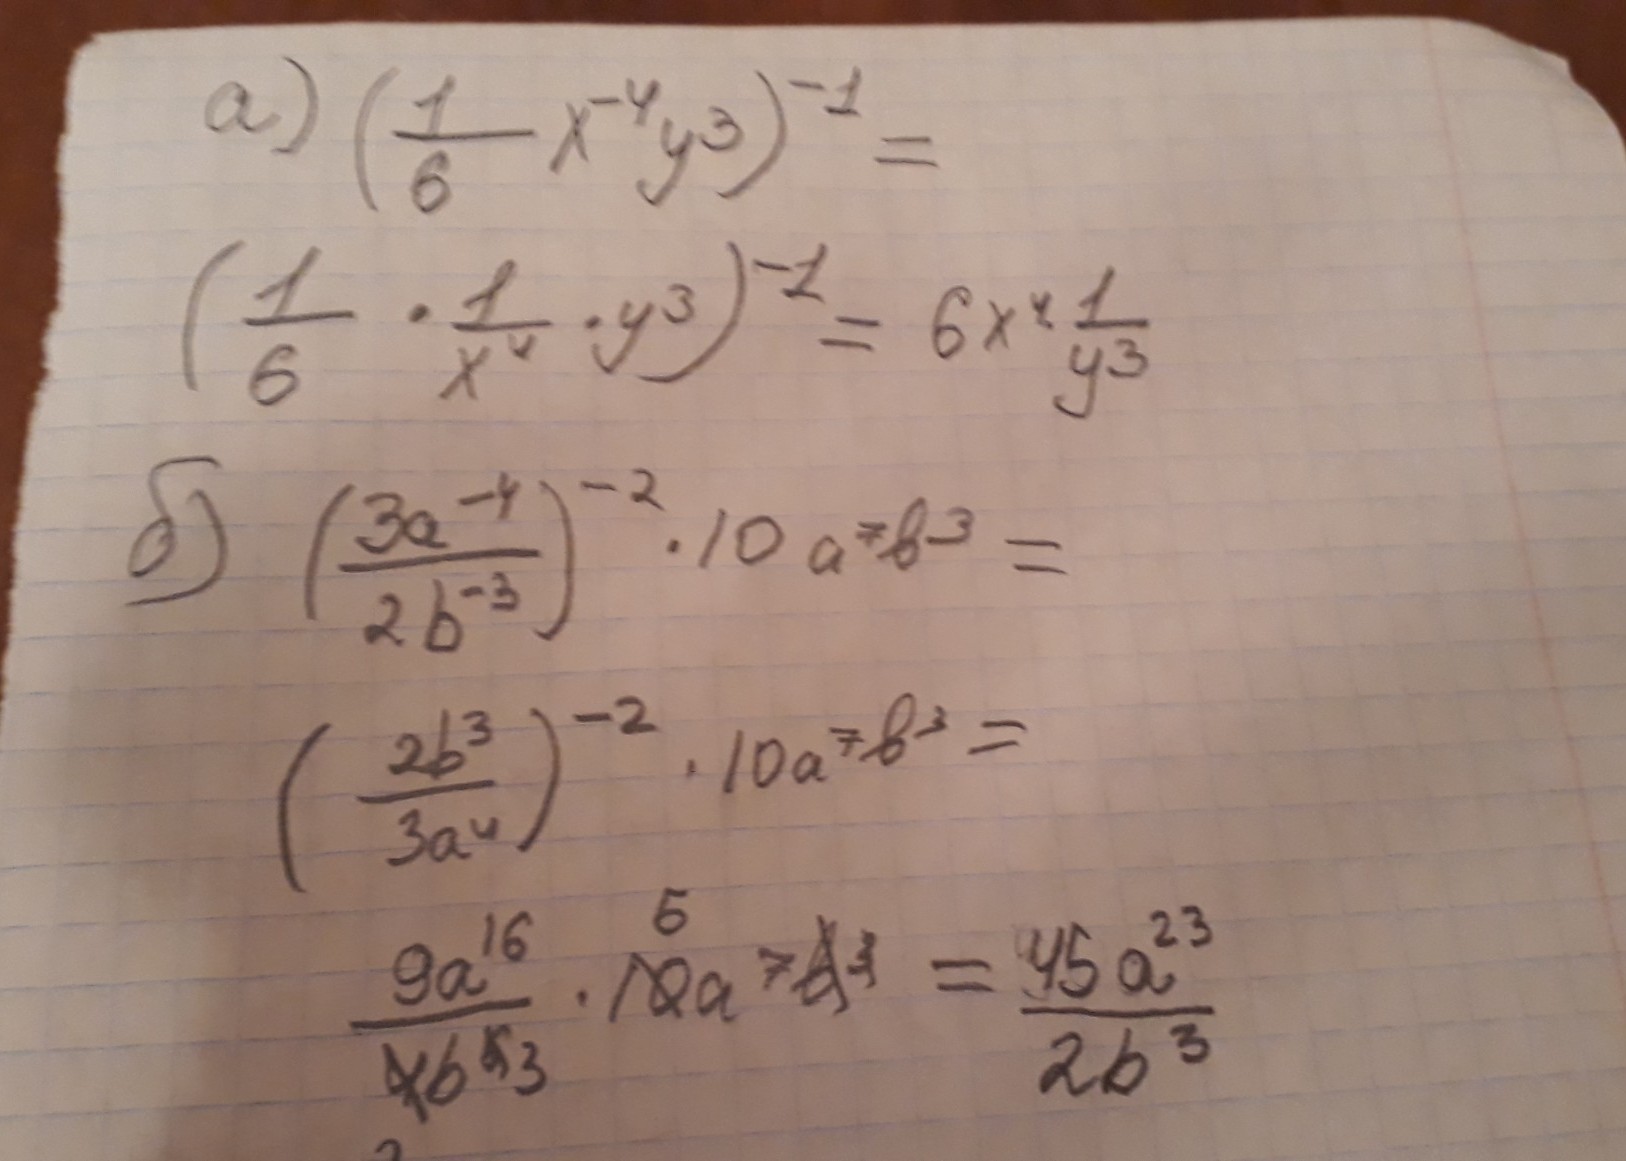 а) (1/6 x⁻⁴y³)⁻¹ =
(1/6 · 1/x⁴ · y³)⁻¹ = 6x⁴ 1/y³
б) (3a⁻⁴/2b⁻³)⁻² · 10a⁷b³ =
(2b³/3a⁴)⁻² · 10a⁷b³ =
5
9a¹⁶/4b⁶ 3 · 10a⁷b³ = 45a²³/2b³
2